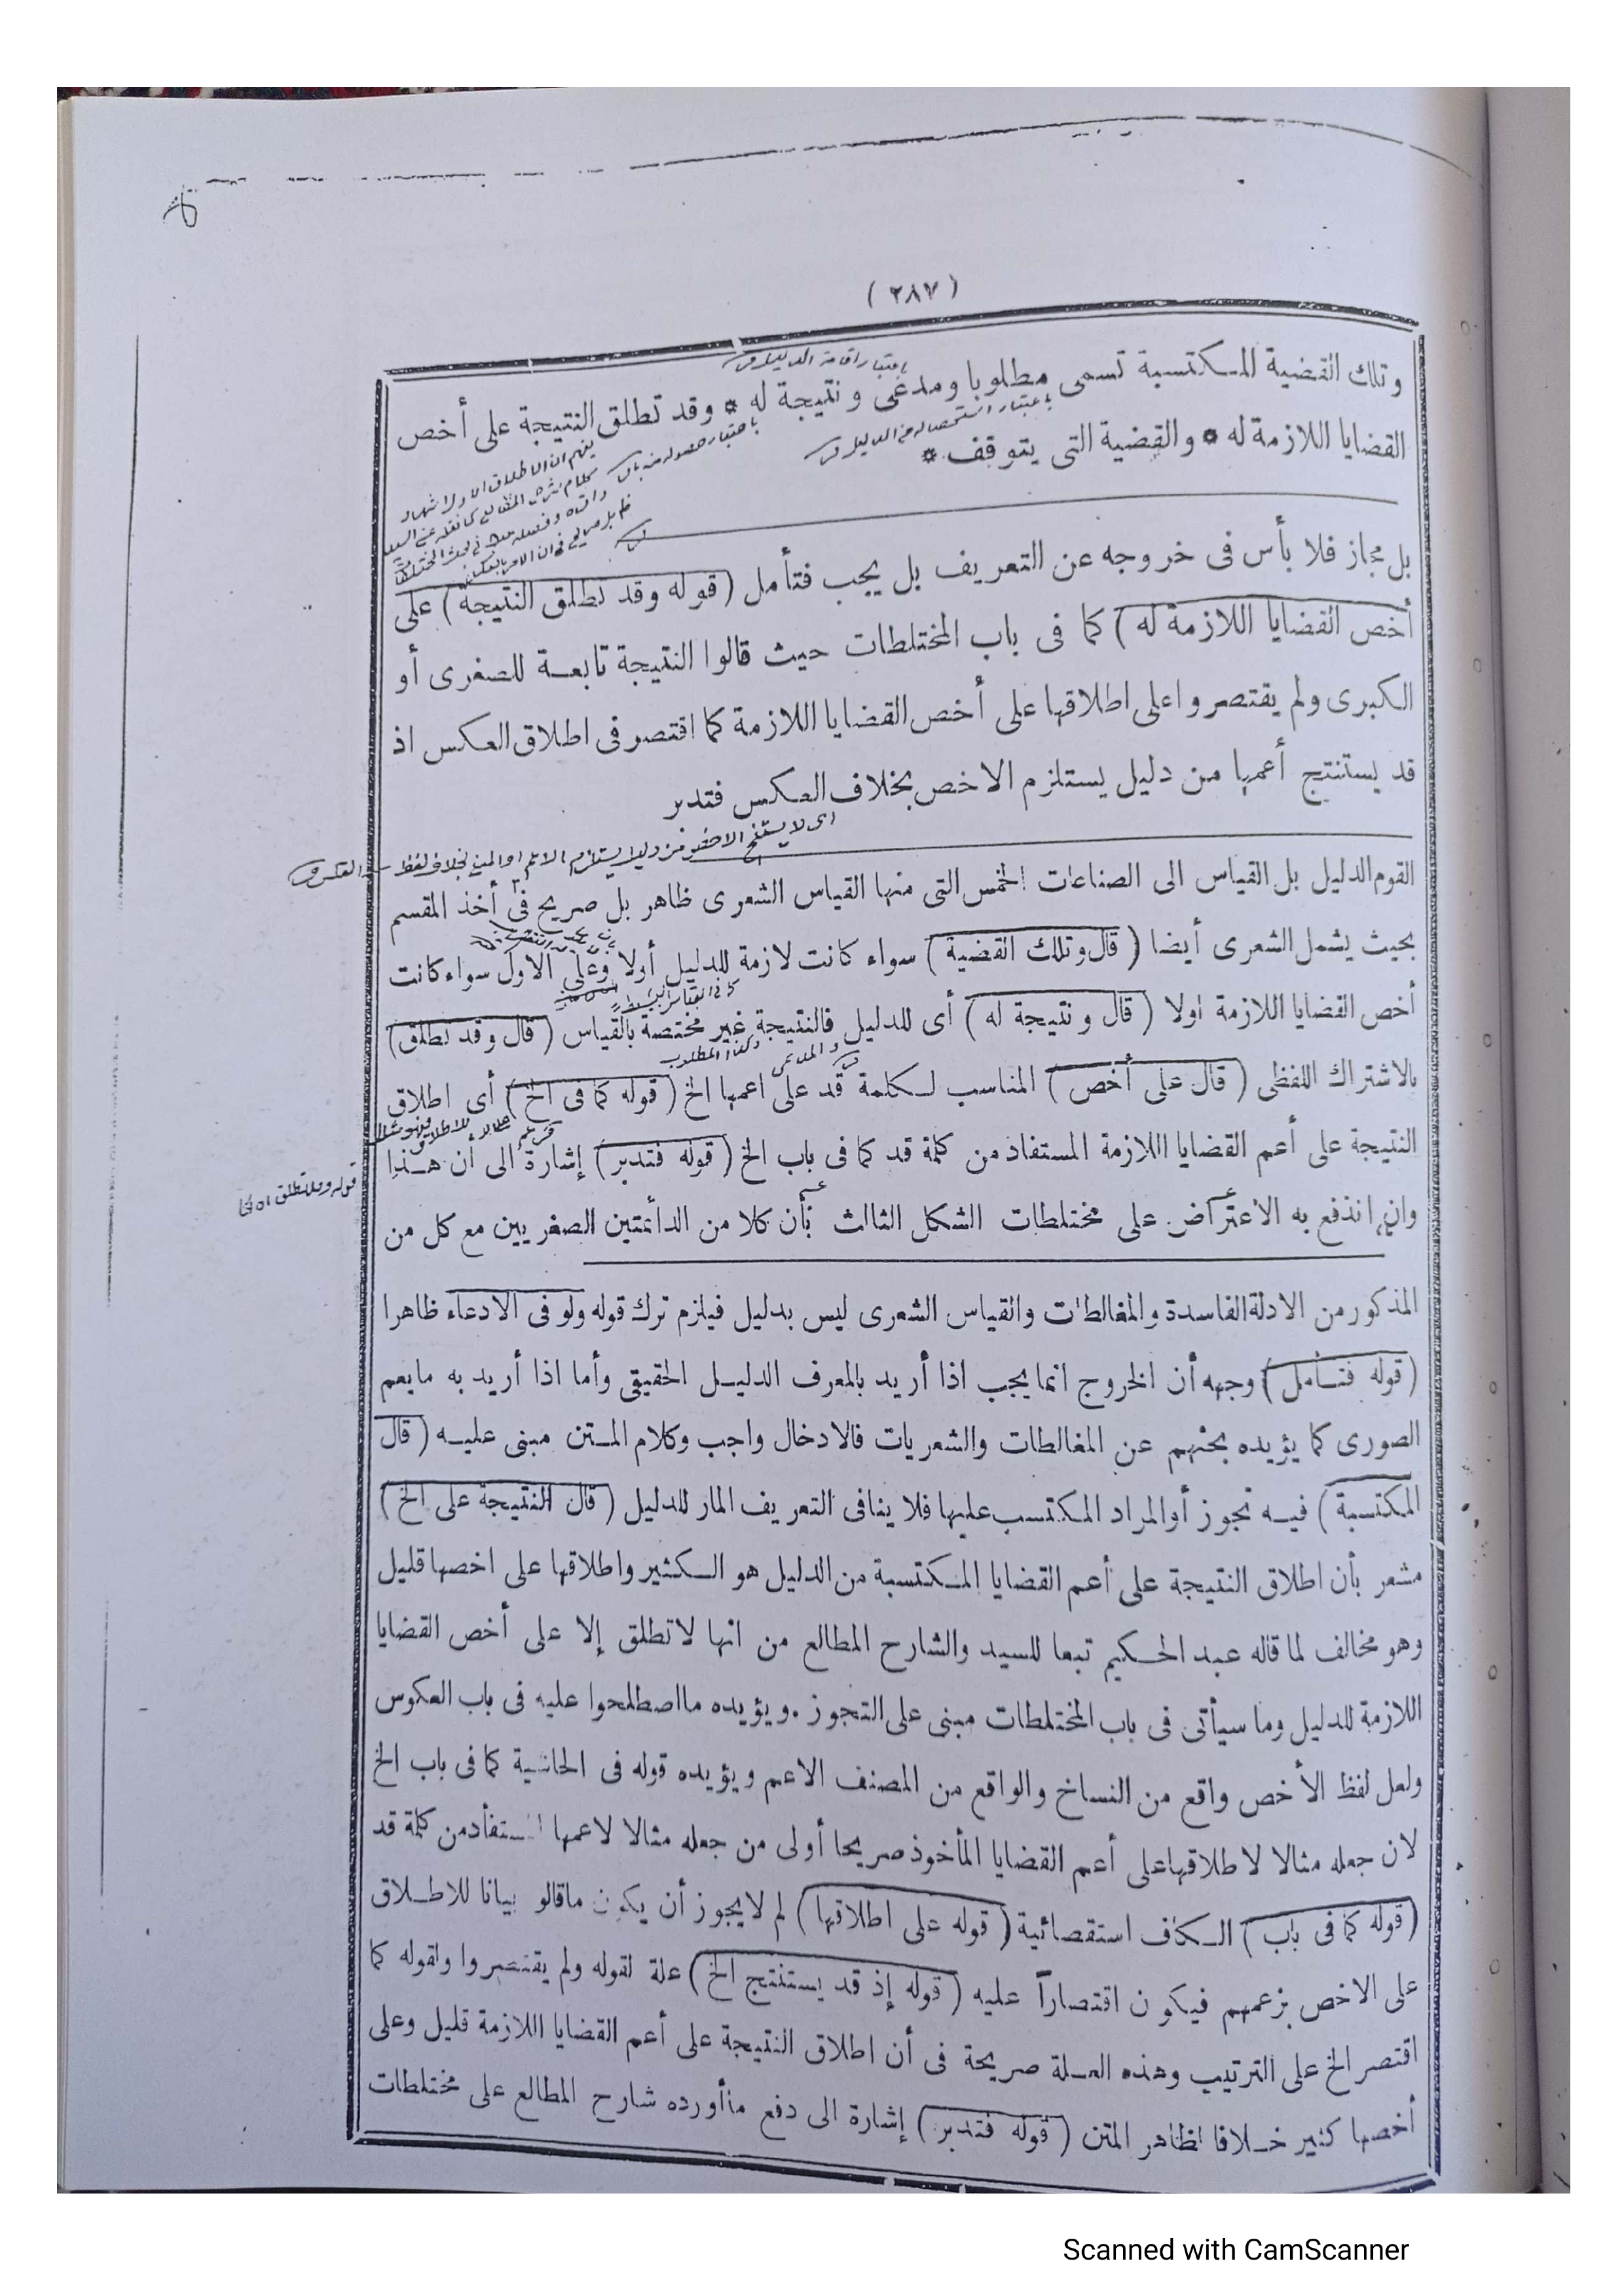 (٢٨٧)
وتلك القضية المكتسبة تسمى مطلوبا ومدعى ونتيجة له * وقد تطلق النتيجة على أخص
القضايا اللازمة له * والقضية التى يتوقف *
باعتبار اقامة الدليل
باعتبار استحصاله من الدليل
بل مجاز فلا بأس فى خروجه عن التعريف بل يجب فتأمل (قوله وقد تطلق النتيجة) على
أخص القضايا اللازمة له) كما فى باب المختلطات حيث قالوا النتيجة تابعة للصغرى أو
الكبرى ولم يقتصروا على اطلاقها على أخص القضايا اللازمة كما اقتصر فى اطلاق العكس اذ
قد يستنتج أعمها من دليل يستلزم الاخص بخلاف العكس فتدبر
القوم الدليل بل القياس الى الصناعات الخمس التى منها القياس الشعرى ظاهر بل صريح فى أخذ المقسم
بحيث يشمل الشعرى أيضا (قال وتلك القضية) سواء كانت لازمة للدليل أولا وعلى الاول سواء كانت
أخص القضايا اللازمة اولا (قال ونتيجة له) أى للدليل فالنتيجة غير مختصة بالقياس (قال وقد تطلق)
بالاشتراك اللفظى (قال على أخص) المناسب لكلمة قد على اعمها الخ (قوله كما فى الخ) أى اطلاق
النتيجة على أعم القضايا اللازمة المستفاد من كلمة قد كما فى باب الخ (قوله فتدبر) إشارة الى أن هذا
وان اندفع به الاعتراض على مختلطات الشكل الثالث بأن كلا من الدائمتين الصغريين مع كل من
المذكور من الادلة الفاسدة والمغالطات والقياس الشعرى ليس بدليل فيلزم ترك قوله ولو فى الادعاء ظاهرا
(قوله فتأمل) وجهه أن الخروج انما يجب اذا أريد بالمعرف الدليل الحقيقى وأما اذا أريد به مايعم
الصورى كما يؤيده بحثهم عن المغالطات والشعريات فالادخال واجب وكلام المتن مبنى عليه (قال
المكتسبة) فيه تجوز أو المراد المكتسب عليها فلا ينافى التعريف المار للدليل (قال النتيجة على الخ)
مشعر بأن اطلاق النتيجة على أعم القضايا المكتسبة من الدليل هو الكثير واطلاقها على اخصها قليل
وهو مخالف لما قاله عبد الحكيم تبعا للسيد والشارح المطالع من انها لاتطلق إلا على أخص القضايا
اللازمة للدليل وما سيأتى فى باب المختلطات مبنى على التجوز . ويؤيده مااصطلحوا عليه فى باب العكوس
ولعل لفظ الأخص واقع من النساخ والواقع من المصنف الاعم ويؤيده قوله فى الحاشية كما فى باب الخ
لان جعله مثالا لاطلاقها على أعم القضايا المأخوذ صريحا أولى من جعله مثالا لاعمها المستفاد من كلمة قد
(قوله كما فى باب) الكاف استقصائية (قوله على اطلاقها) لم لايجوز أن يكون ماقالو بيانا للاطلاق
على الاخص بزعمهم فيكون اقتصاراً عليه (قوله إذ قد يستنتج الخ) علة لقوله ولم يقتصروا ولقوله كما
اقتصر الخ على الترتيب وهذه العلة صريحة فى أن اطلاق النتيجة على أعم القضايا اللازمة قليل وعلى
أخصها كثير خلافا لظاهر المتن (قوله فتدبر) إشارة الى دفع ماأورده شارح المطالع على مختلطات
Scanned with CamScanner